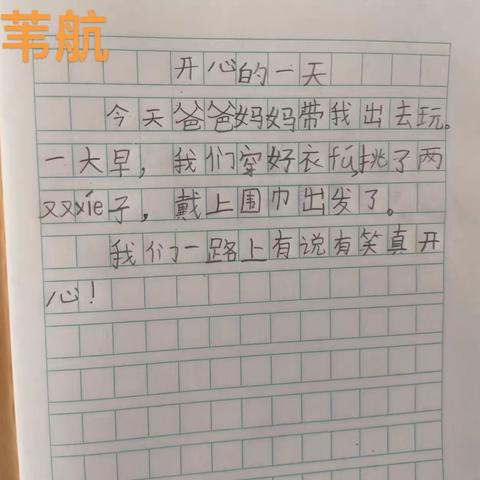 苇航
开心的一天
今天爸爸妈妈带我出去玩。
一大早，我们穿好衣fú,挑了两
双xié子，戴上围巾出发了。
我们一路上有说有笑真开
心！